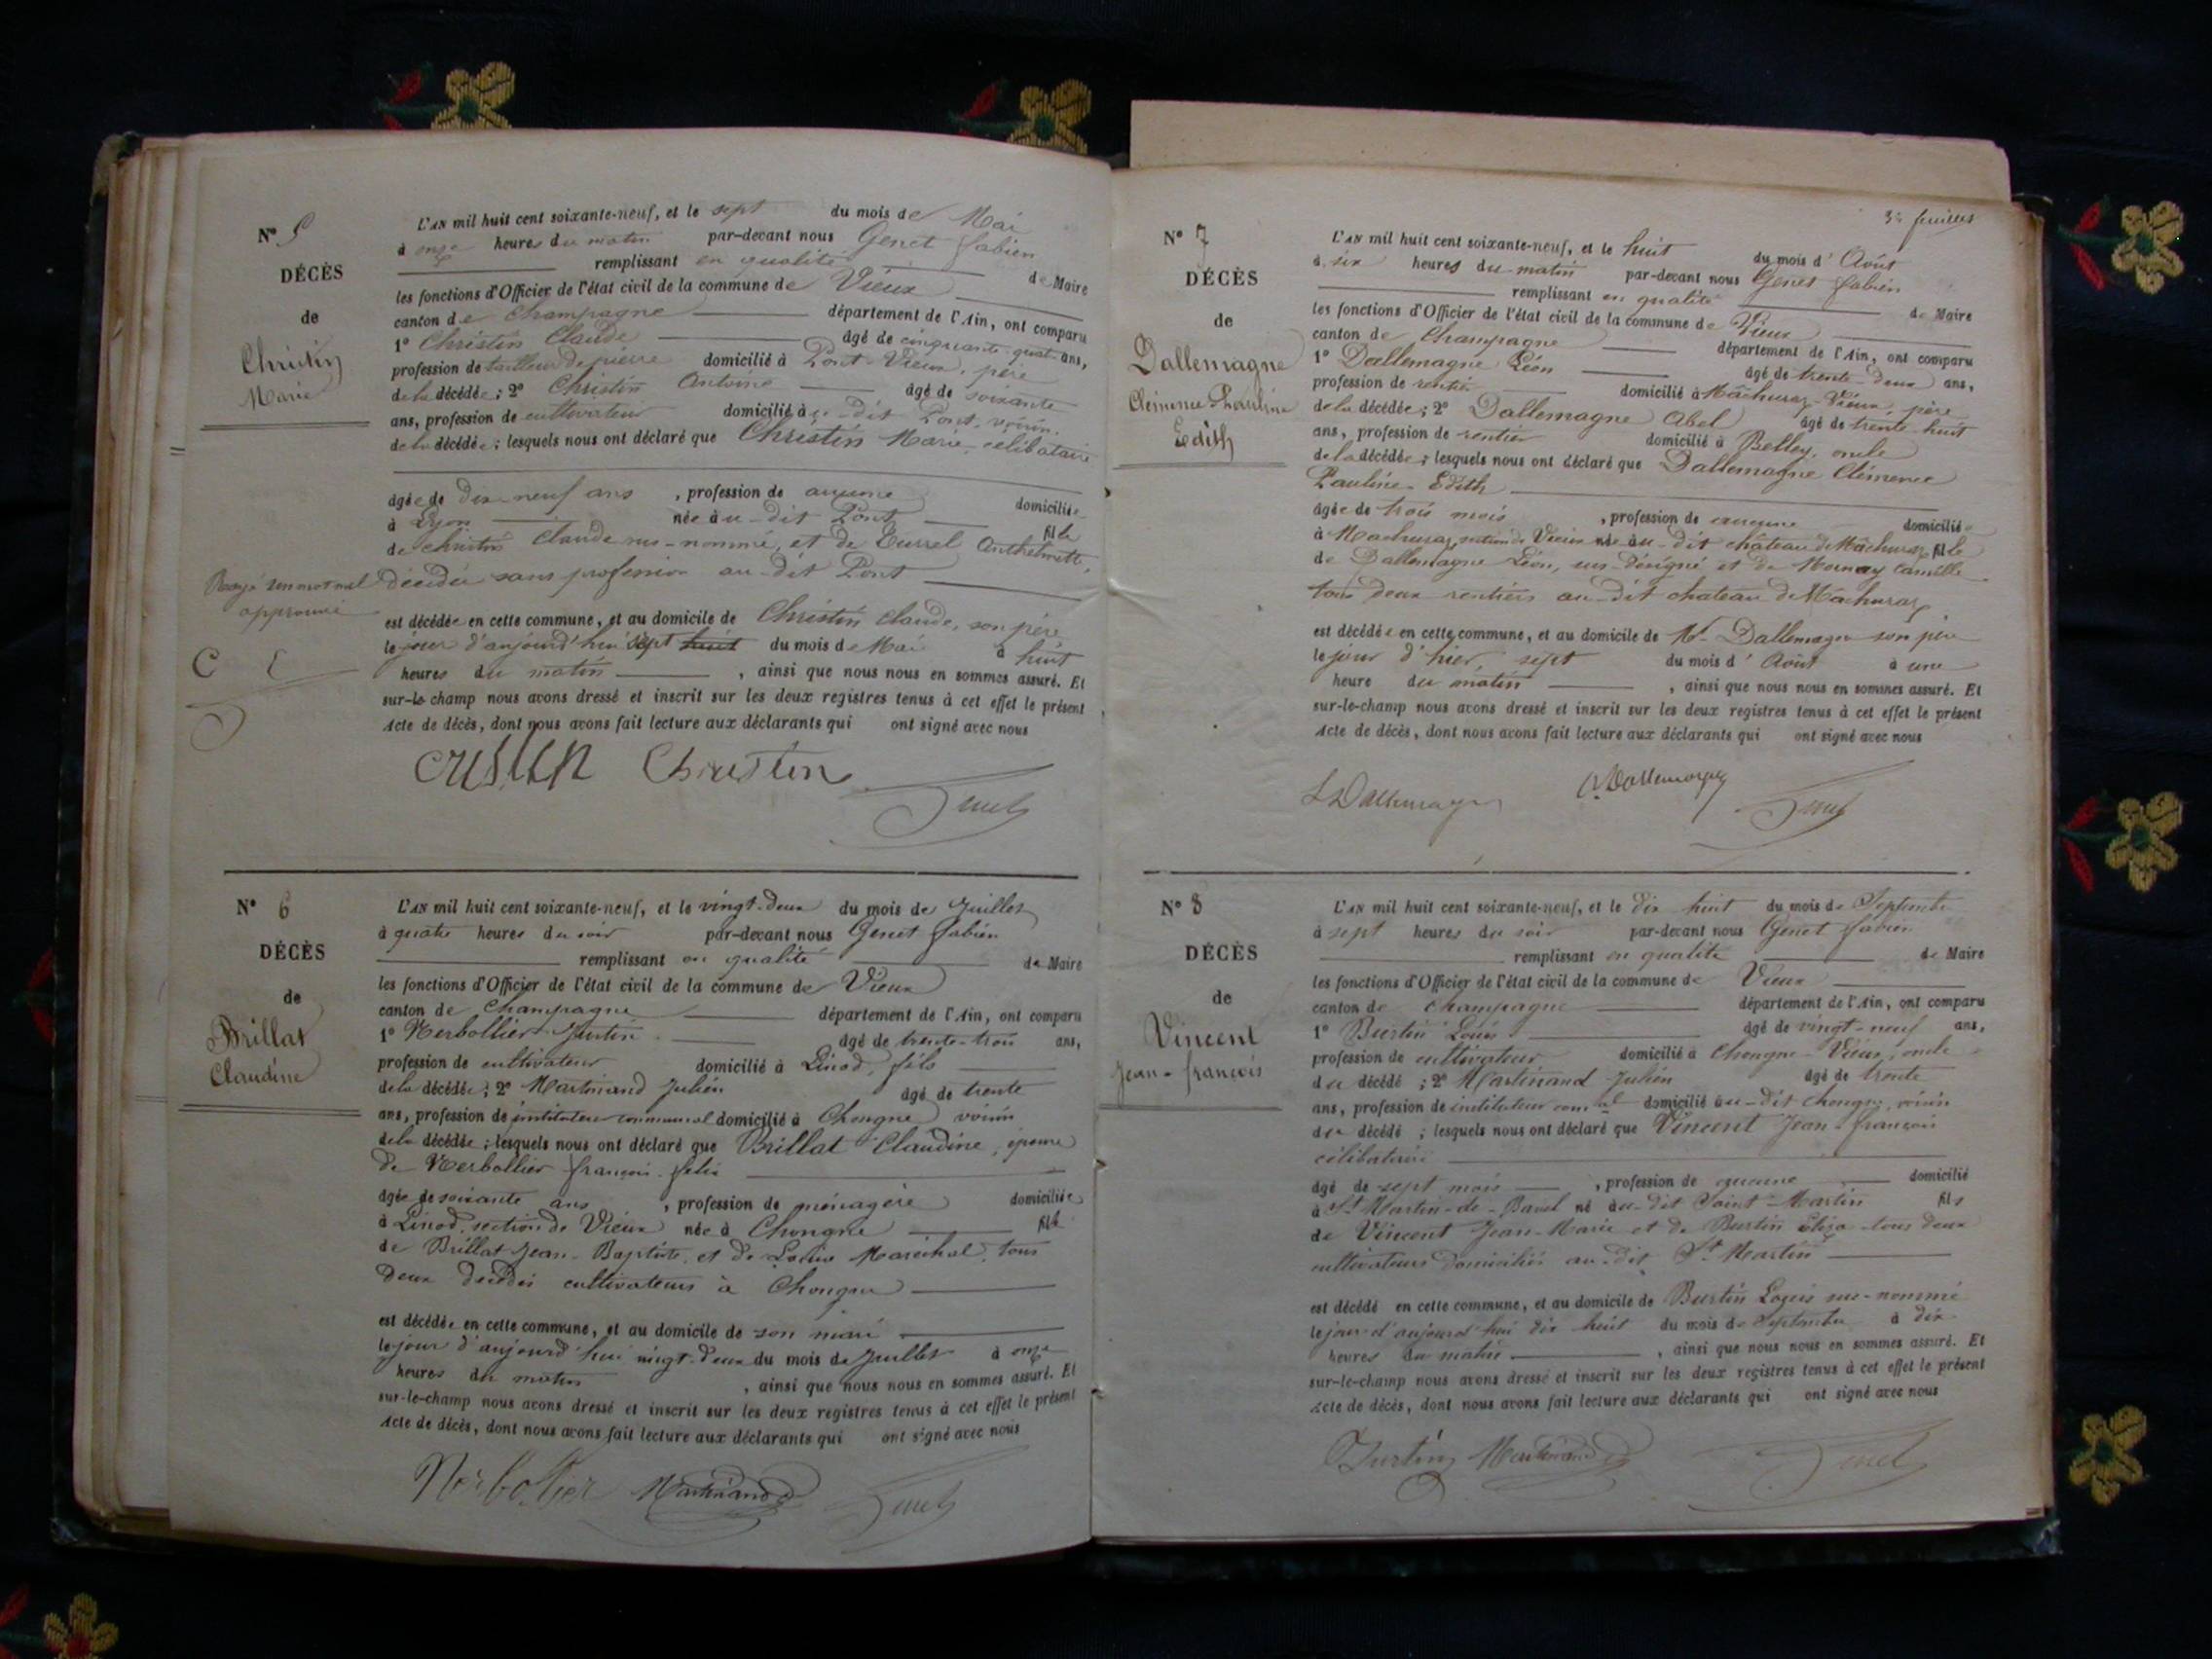 N° 5
DÉCÈS
de
Christin
Marie
L'AN mil huit cent soixante-neuf, et le sept du mois de Mai
à onze heures du matin par-devant nous Genet fabien
remplissant en qualité de Maire
les fonctions d'Officier de l'état civil de la commune de Vieux
canton de Champagne département de l'Ain, ont comparu
1° Christin Claude âgé de cinquante-quatre ans,
profession de tailleur de pierre domicilié à Pont-Vieux, père
de la décédée ; 2° Christin Antoine âgé de soixante
ans, profession de cultivateur domicilié au-dit Pont, voisin
de la décédée ; lesquels nous ont déclaré que Christin Marie, célibataire
âgée de dix-neuf ans , profession de aucune domiciliée
à Lyon née au-dit Pont fille
de Christin Claude sus-nommé, et de Anthelmette,
décédée sans profession au-dit Pont
est décédée en cette commune, et au domicile de Christin Claude, son père
le jour d'aujourd'hui sept huit du mois de Mai à huit
heures du matin , ainsi que nous nous en sommes assuré. Et
sur-le-champ nous avons dressé et inscrit sur les deux registres tenus à cet effet le présent
Acte de décès, dont nous avons fait lecture aux déclarants qui ont signé avec nous
Rayé un mot nul
approuvé
Christin
Genet
N° 6
DÉCÈS
de
Brillat
Claudine
L'AN mil huit cent soixante-neuf, et le vingt-deux du mois de Juillet
à quatre heures du soir par-devant nous Genet fabien
remplissant en qualité de Maire
les fonctions d'Officier de l'état civil de la commune de Vieux
canton de Champagne département de l'Ain, ont comparu
1° Nerbollier Justin âgé de trente-trois ans,
profession de cultivateur domicilié à Linod, fils
de la décédée ; 2° Martinand Julien âgé de trente
ans, profession de instituteur communal domicilié à Chongne voisin
de la décédée ; lesquels nous ont déclaré que Brillat Claudine, épouse
de Nerbollier françois-felix
âgée de soixante ans , profession de ménagère domiciliée
à Linod, section de Vieux née à Chongne fille
de Brillat Jean-Baptiste, et de Louise Maréchal, tous
deux décédés cultivateurs à Chongne
est décédée en cette commune, et au domicile de son mari
le jour d'aujourd'hui vingt-deux du mois de Juillet à onze
heures du matin , ainsi que nous nous en sommes assuré. Et
sur-le-champ nous avons dressé et inscrit sur les deux registres tenus à cet effet le présent
Acte de décès, dont nous avons fait lecture aux déclarants qui ont signé avec nous
Nerbollier Martinand Genet
3e feuillet
N° 7
DÉCÈS
de
Dallemagne
Clémence Pauline
Edith
L'AN mil huit cent soixante-neuf, et le huit du mois d'Août
à six heures du matin par-devant nous Genet fabien
remplissant en qualité de Maire
les fonctions d'Officier de l'état civil de la commune de Vieux
canton de Champagne département de l'Ain, ont comparu
1° Dallemagne Léon âgé de trente-deux ans,
profession de rentier domicilié à Mâchuraz-Vieux, père
de la décédée ; 2° Dallemagne Abel âgé de trente-huit
ans, profession de rentier domicilié à Belley, oncle
de la décédée ; lesquels nous ont déclaré que Dallemagne Clémence
Pauline-Edith
âgée de trois mois , profession de aucune domiciliée
à Machuraz section de Vieux née au-dit château de Mâchuraz fille
de Dallemagne Léon, sus-désigné et de Mornay Camille
tous deux rentiers au-dit chateau de Mâchuraz
est décédée en cette commune, et au domicile de Mr Dallemagne son père
le jour d'hier, sept du mois d'Août à une
heure du matin , ainsi que nous nous en sommes assuré. Et
sur-le-champ nous avons dressé et inscrit sur les deux registres tenus à cet effet le présent
Acte de décès, dont nous avons fait lecture aux déclarants qui ont signé avec nous
L Dallemagne A. Dallemagne Genet
N° 8
DÉCÈS
de
Vincent
Jean-françois
L'AN mil huit cent soixante-neuf, et le dix huit du mois de Septembre
à sept heures du soir par-devant nous Genet fabien
remplissant en qualité de Maire
les fonctions d'Officier de l'état civil de la commune de Vieux
canton de Champagne département de l'Ain, ont comparu
1° Burtin Louis âgé de vingt-neuf ans,
profession de cultivateur domicilié à Chongne-Vieux, oncle
du décédé ; 2° Martinand Julien âgé de trente
ans, profession de instituteur comal domicilié au-dit Chongne, voisin
du décédé ; lesquels nous ont déclaré que Vincent Jean-françois
célibataire
âgé de sept mois , profession de aucune domicilié
à St Martin-de-Bavel né au-dit Saint-Martin fils
de Vincent Jean-Marie et de Burtin Eliza tous deux
cultivateurs domiciliés au-dit St Martin
est décédé en cette commune, et au domicile de Burtin Louis sus-nommé
le jour d'aujourd'hui dix huit du mois de Septembre à dix
heures du matin , ainsi que nous nous en sommes assuré. Et
sur-le-champ nous avons dressé et inscrit sur les deux registres tenus à cet effet le présent
Acte de décès, dont nous avons fait lecture aux déclarants qui ont signé avec nous
Burtin Martinand Genet